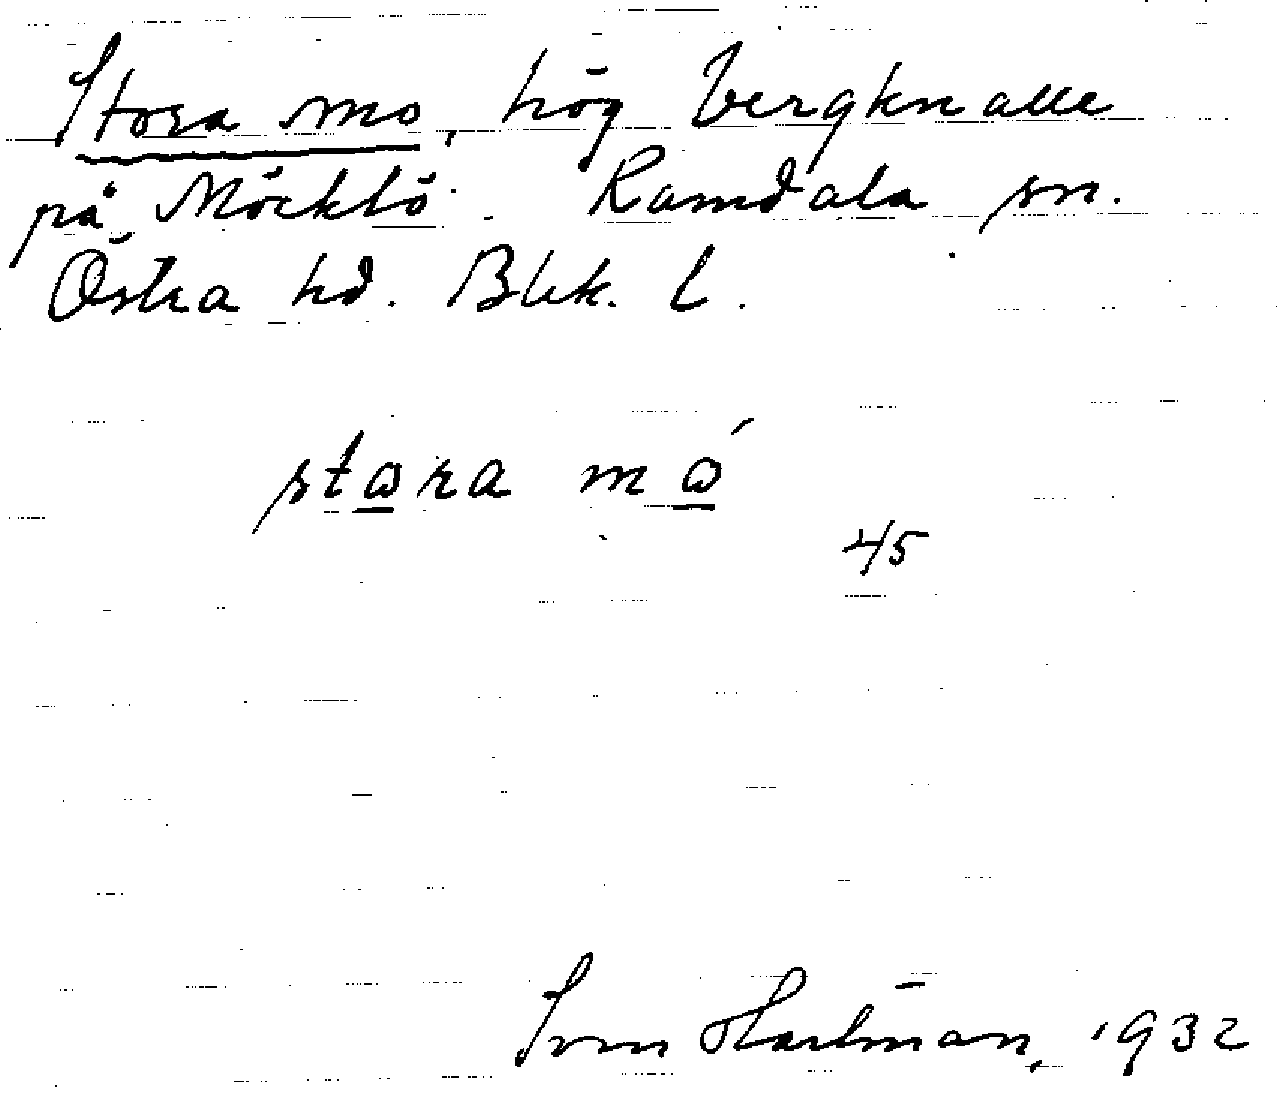 Stora mo, hög bergknalle
på Möcklö. Ramdala sn.
Östra hd. Blek. l.
stora mó
45
Sven Hartman, 1932